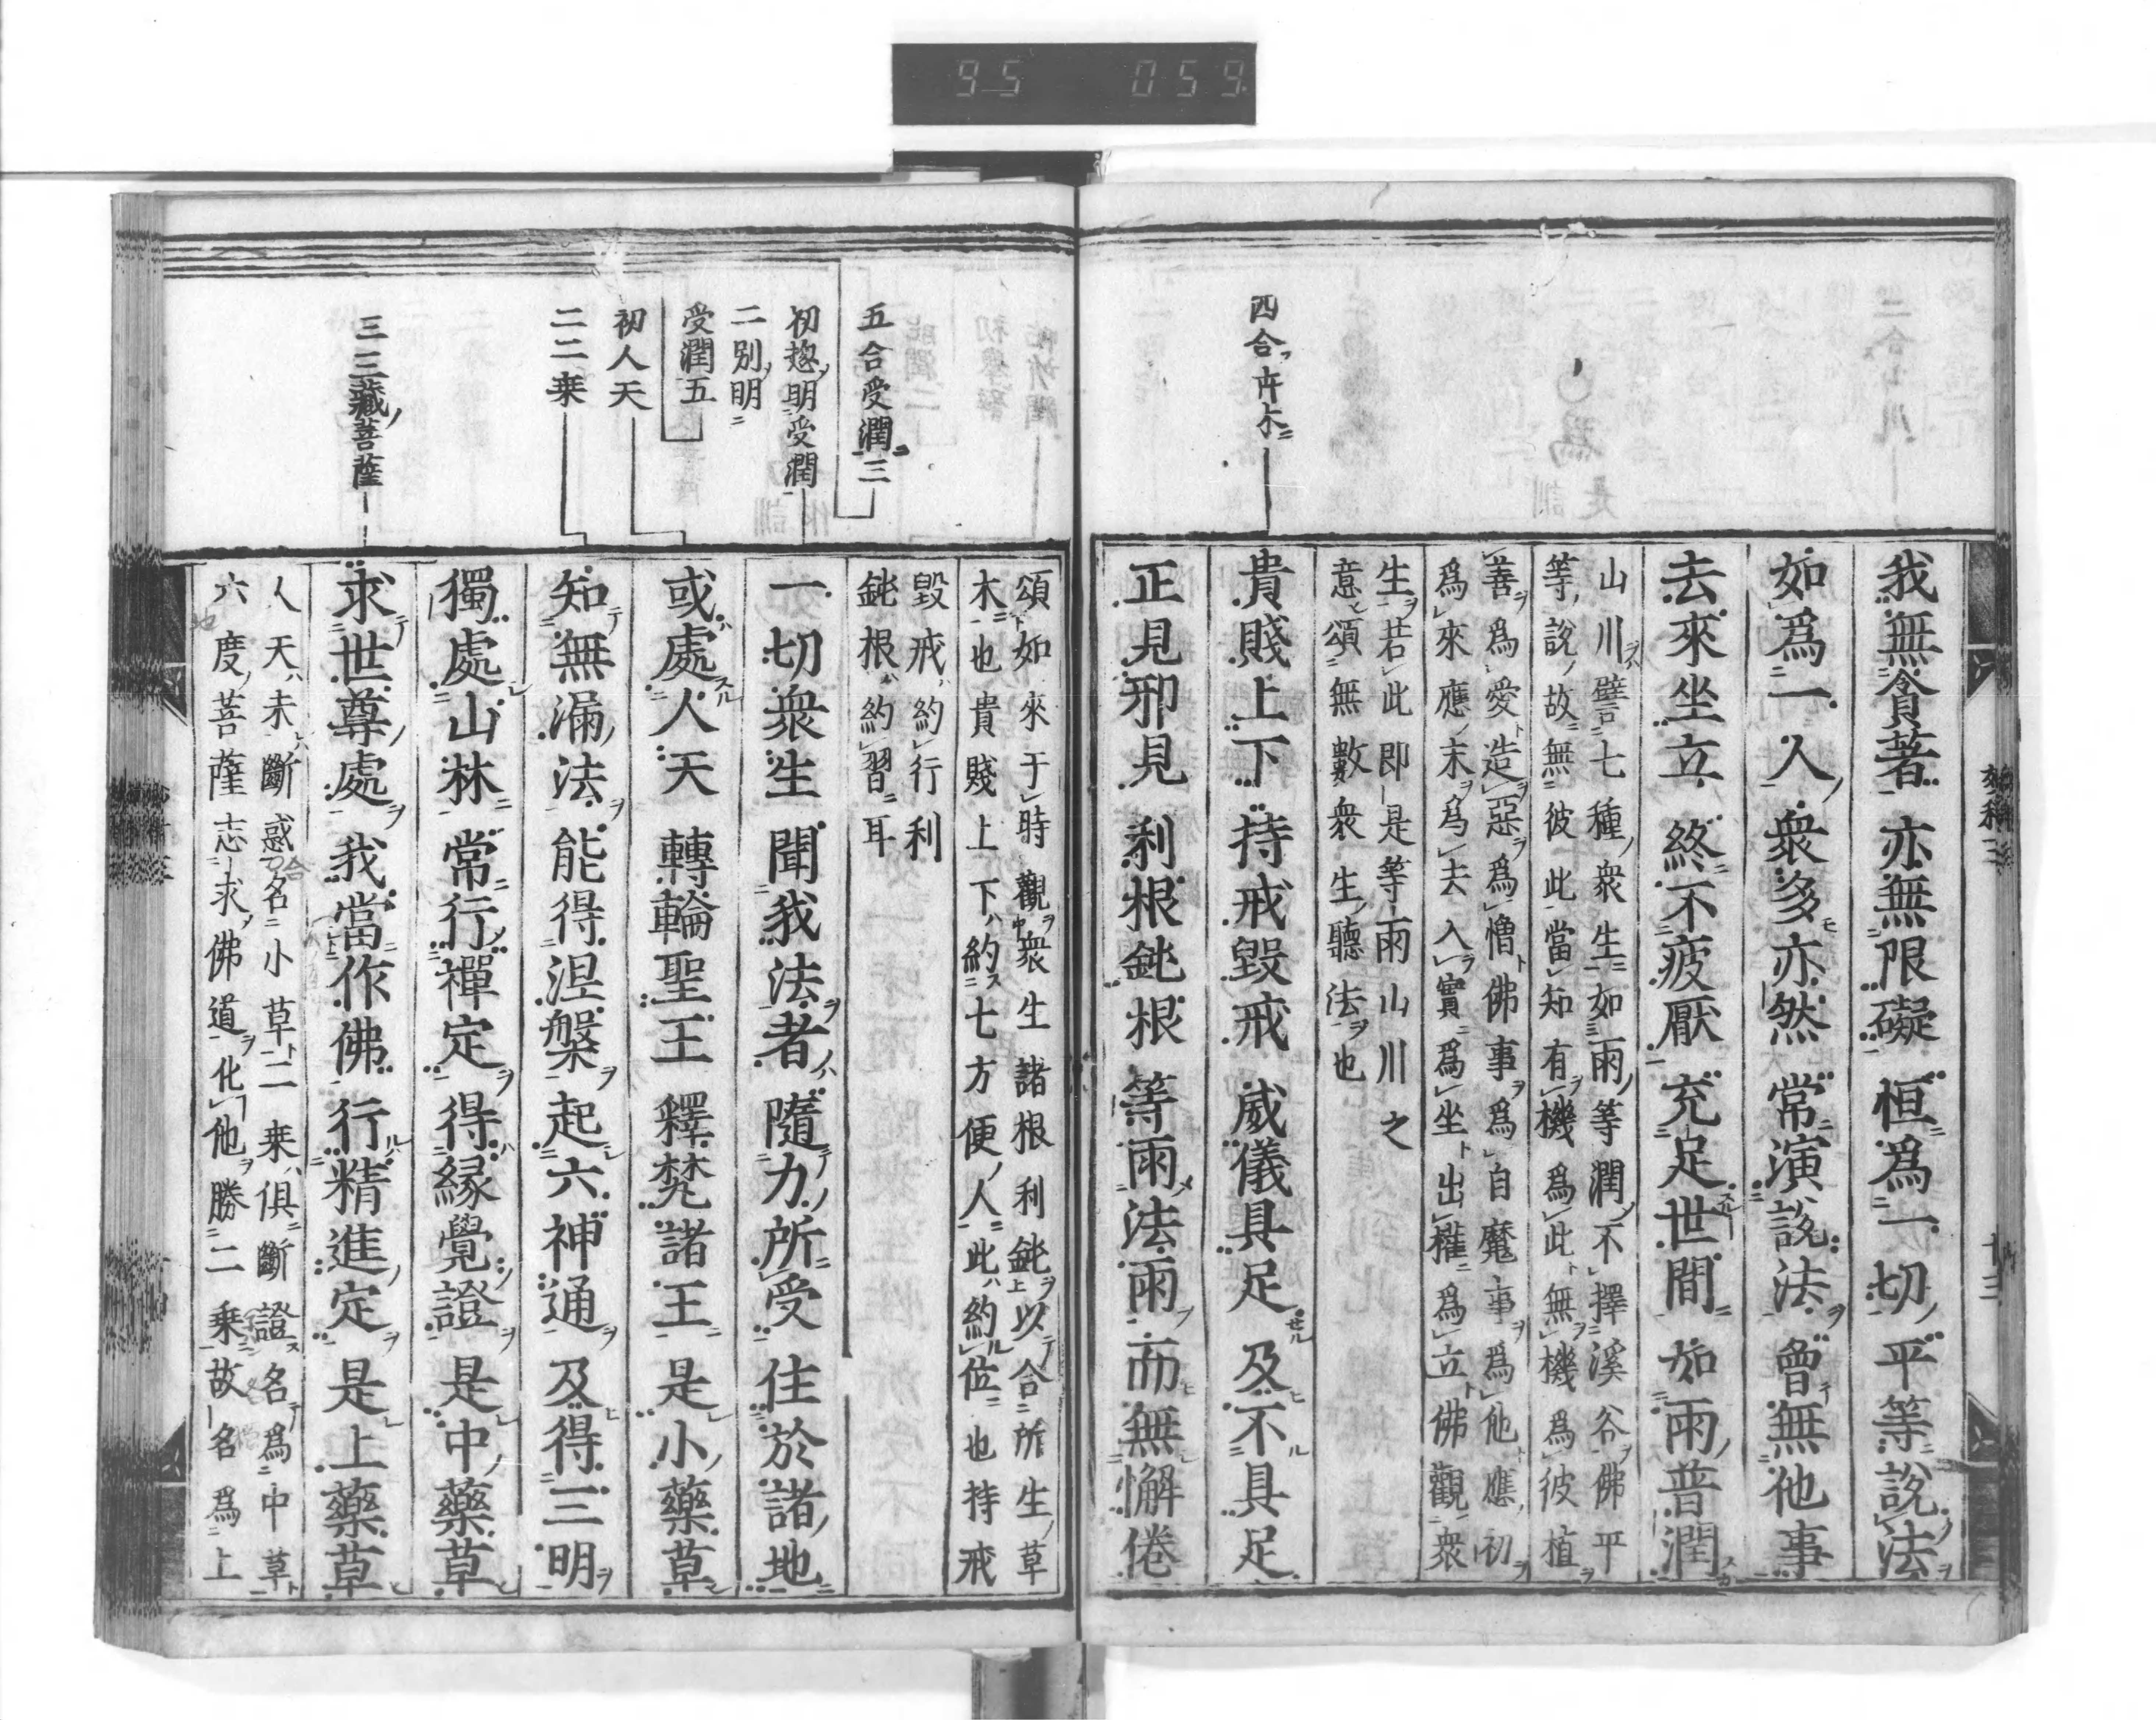 95 059
四合卉木
我無貪著亦無限礙恒爲一切平等說法
如爲一人衆多亦然常演說法曾無他事
去來坐立終不疲厭充足世間如雨普潤
山川譬七種衆生如雨等潤不擇溪谷佛平
等說故無彼此當知有機爲此無機爲彼植
善爲愛造惡爲憎佛事爲自魔事爲他應初
爲來應末爲去入實爲坐出權爲立佛觀衆
生若此即是等雨山川之
意頌無數衆生聽法也
貴賤上下持戒毀戒威儀具足及不具足
正見邪見利根鈍根等雨法雨而無懈倦
五合受潤三
初惣明受潤
二別明
受潤五
初人天
二二乗
三三藏菩薩
頌如來于時觀衆生諸根利鈍以合所生草
木也貴賤上下約七方便人此約位也持戒
毀戒約行利
鈍根約習耳
一切衆生聞我法者隨力所受住於諸地
或處人天轉輪聖王釋梵諸王是小藥草
知無漏法能得涅槃起六神通及得三明
獨處山林常行禪定得緣覺證是中藥草
求世尊處我當作佛行精進定是上藥草
人天未斷惑名小草二乗俱斷證名爲中草
六度菩薩志求佛道化他勝二乗故名爲上